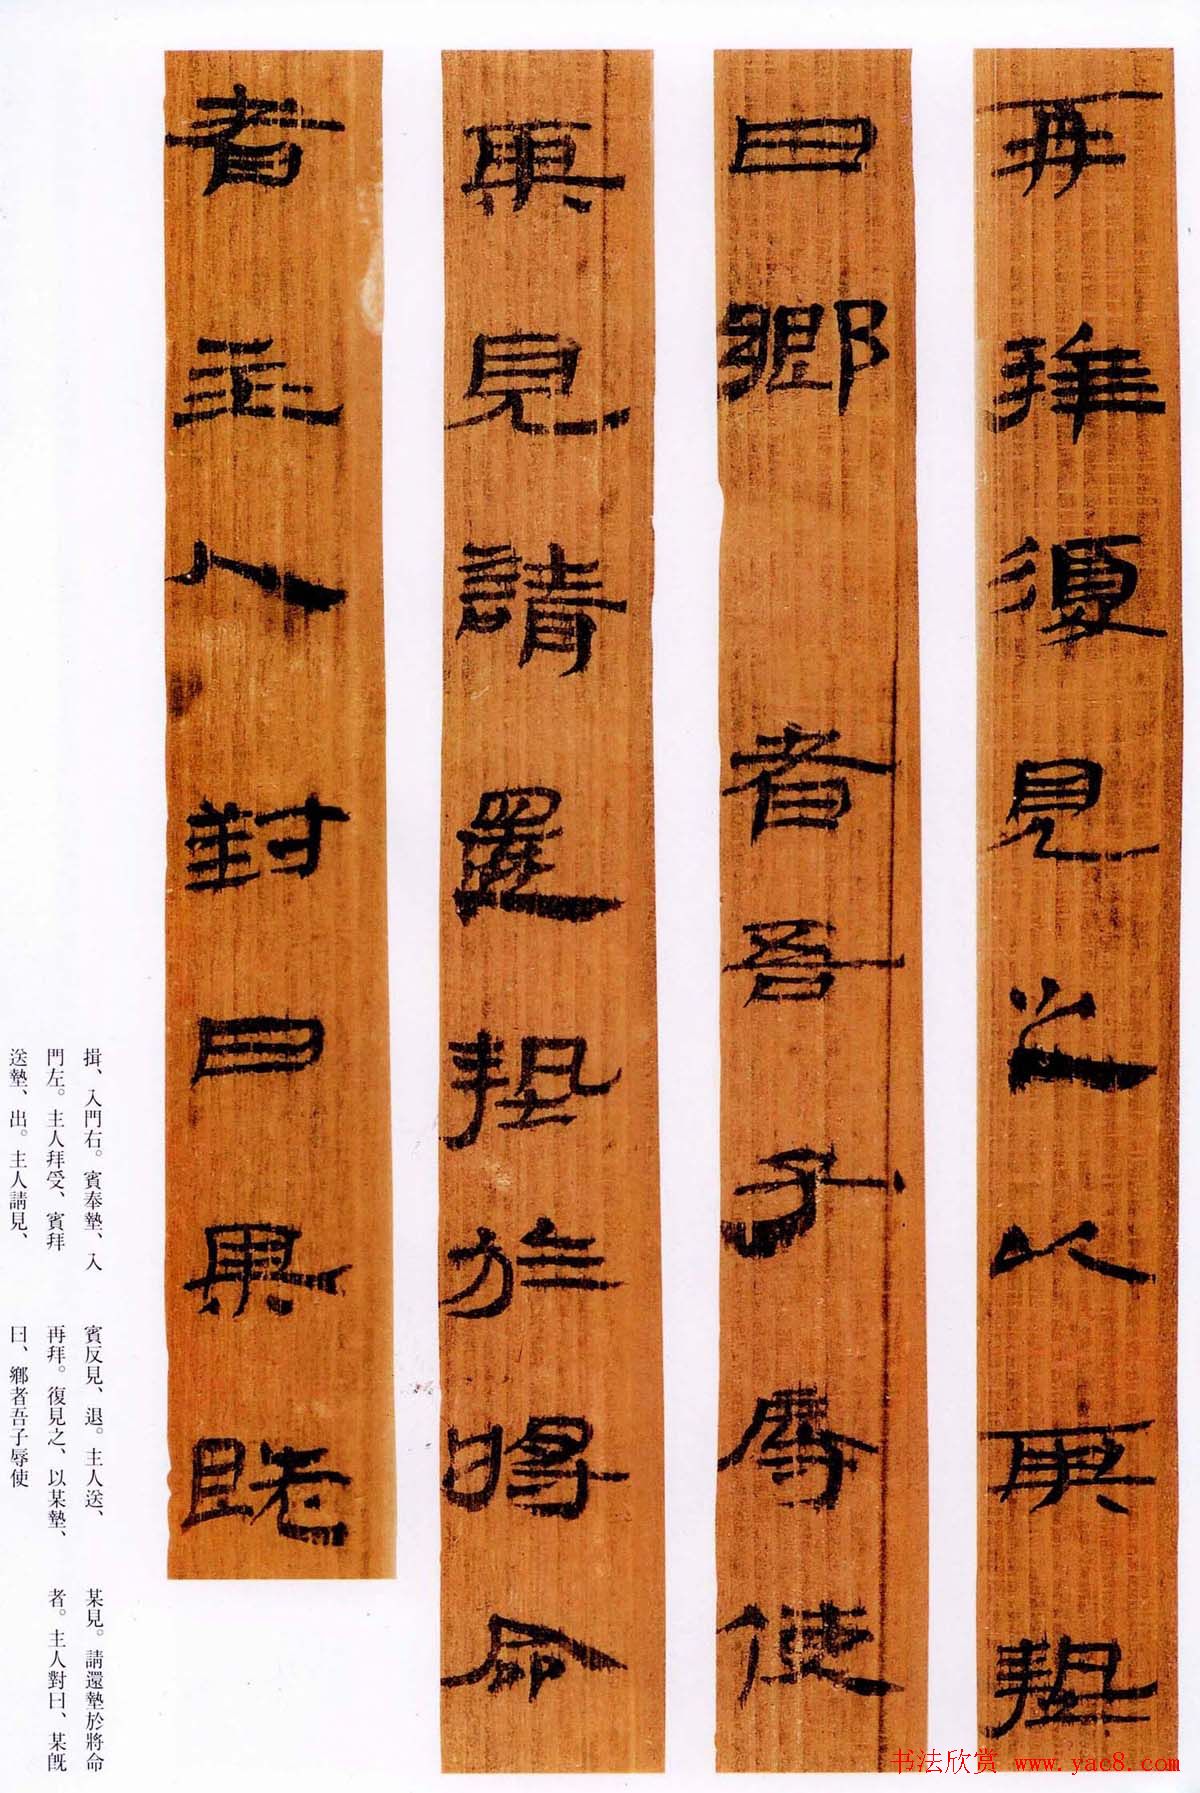 再拜復見之以某墊
曰鄉者吾子辱使
某見請還墊於將命
者主人對曰某既
揖、入門右。賓奉墊、入
門左。主人拜受、賓拜
送墊、出。主人請見、
賓反見、退。主人送、
再拜。復見之、以某墊、
曰、鄉者吾子辱使
某見。請還墊於將命
者。主人對曰、某既
书法欣赏 www.yac8.com